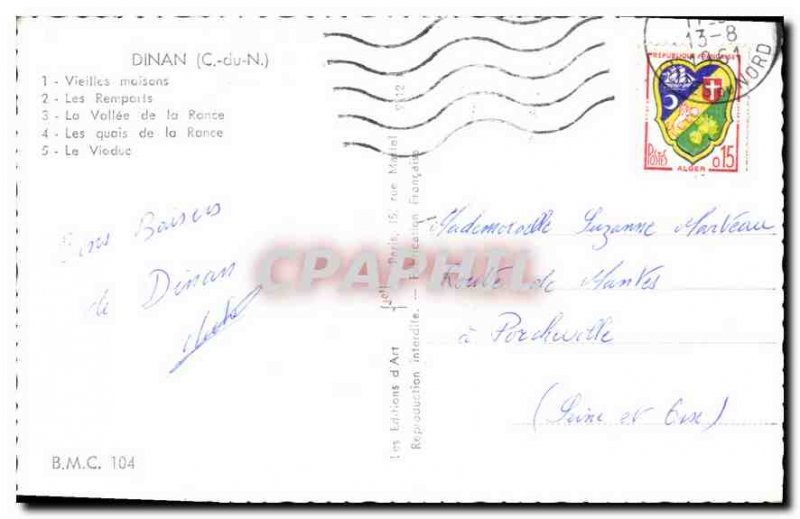 DINAN (C.-du-N.)
1 - Vieilles maisons
2 - Les Remparts
3 - La Vallée de la Rance
4 - Les quais de la Rance
5 - Le Viaduc
Bons Baisers
de Dinan
B.M.C. 104
Les Editions d'Art Paris, 15, rue Martel 9-12
Reproduction interdite. - Fabrication Française
13-8
1961
NORD
REPUBLIQUE FRANÇAISE
POSTES 0,15
ALGER
Mademoiselle Suzanne Marbeau
Route de Mantes
à Porcheville
(Seine et Oise)
CPAPHIL